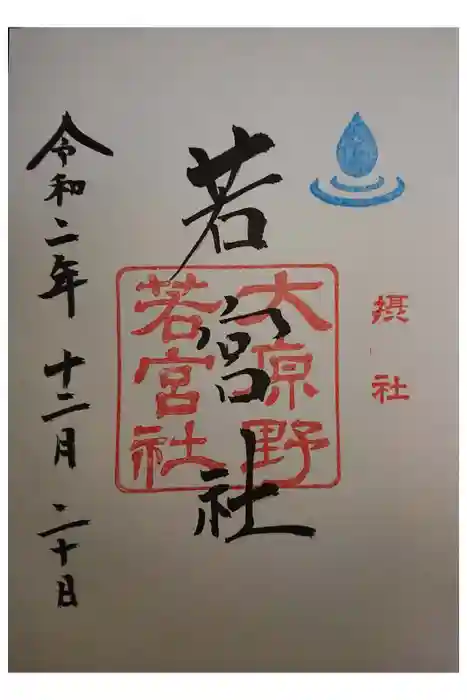 摂社
若宮社
大原野
若宮社
令和二年 十二月 二十日